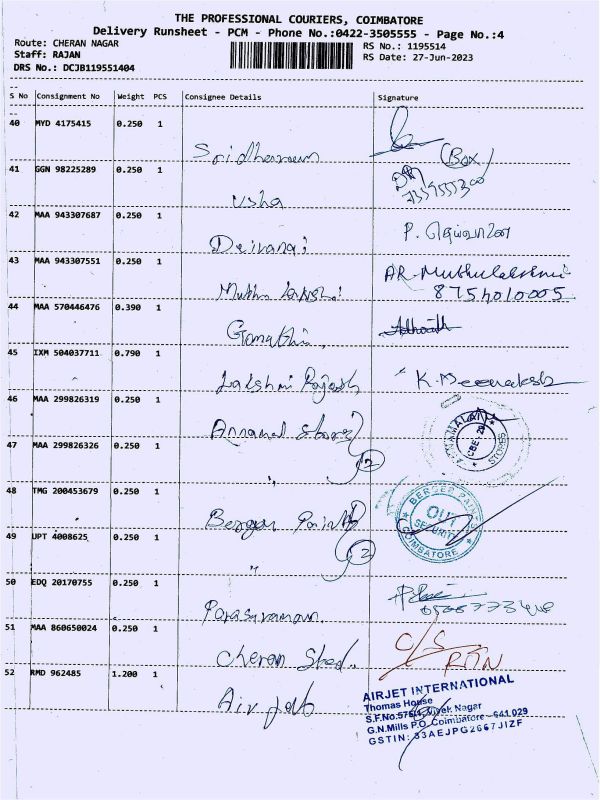 THE PROFESSIONAL COURIERS, COIMBATORE
Delivery Runsheet - PCM - Phone No.:0422-3505555 - Page No.:4
Route: CHERAN NAGAR RS No.: 1195514
Staff: RAJAN RS Date: 27-Jun-2023
DRS No.: DCJB119551404
S No Consignment No Weight PCS Consignee Details Signature
40 MYD 4175415 0.250 1
(Box)
41 GGN 98225289 0.250 1
Usha
42 MAA 943307687 0.250 1
Deivanai
P.
43 MAA 943307551 0.250 1
AR. Muthulakshmi
8754010005
44 MAA 570446476 0.390 1
45 IXM 504037711 0.790 1
Lakshmi Rajesh
K. Meenakshi
46 MAA 299826319 0.250 1
Annamal Stores
ANNAMALAI STORES
CBE-29
47 MAA 299826326 0.250 1
" 2
48 TMG 200453679 0.250 1
Berger Paints
BERGER PAINTS
OUT
SECURITY
COIMBATORE
49 UPT 4008625 0.250 1
" 2
50 EDQ 20170755 0.250 1
Parasuraman
51 MAA 860650024 0.250 1
Cheran
C/S
RTN
52 RMD 962485 1.200 1
Air Jet
AIRJET INTERNATIONAL
Thomas House
S.F.No.576/1, Vivek Nagar
G.N.Mills P.O. Coimbatore - 641 029
GSTIN: 33AEJPG2667J1ZF